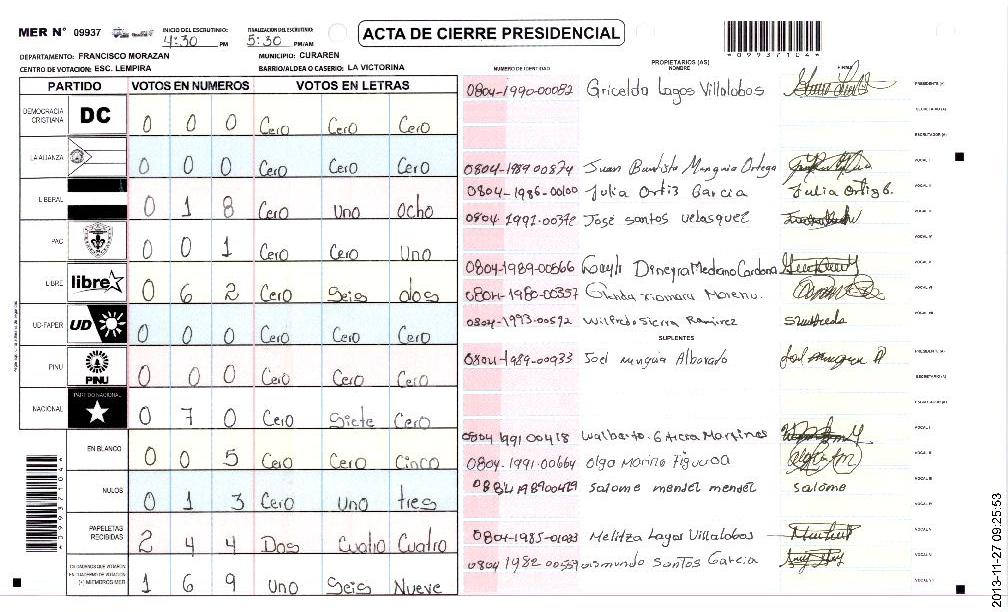 MER N° 09937 INICIO DEL ESCRUTINIO: 4:30 PM FINALIZACION DEL ESCRUTINIO: 5:30 PM/AM
ACTA DE CIERRE PRESIDENCIAL
DEPARTAMENTO: FRANCISCO MORAZAN MUNICIPIO: CURAREN
CENTRO DE VOTACION: ESC. LEMPIRA BARRIO/ALDEA O CASERIO: LA VICTORINA
PARTIDO VOTOS EN NUMEROS VOTOS EN LETRAS
DEMOCRACIA CRISTIANA DC 0 0 0 Cero Cero Cero
LA ALIANZA 0 0 0 Cero Cero Cero
LIBERAL 0 1 8 Cero Uno ocho
PAC 0 0 1 Cero Cero Uno
LIBRE libre 0 6 2 Cero Seis dos
UD-FAPER UD 0 0 0 Cero Cero Cero
PINU PINU 0 0 0 Cero Cero Cero
NACIONAL PARTIDO NACIONAL 0 7 0 Cero Siete Cero
EN BLANCO 0 0 5 Cero Cero Cinco
NULOS 0 1 3 Cero Uno tres
PAPELETAS RECIBIDAS 2 4 4 Dos Cuatro Cuatro
CIUDADANOS QUE VOTARON EN CUADERNO DE VOTACION (+) MIEMBROS MER 1 6 9 Uno Seis Nueve
NUMERO DE IDENTIDAD PROPIETARIOS (AS) NOMBRE FIRMA
0804-1990-00082 Gricelda Lagos Villalobos PRESIDENTE (A)
SECRETARIO (A)
ESCRUTADOR (A)
0804-1989 00874 Juan Bautista Munguia Ortega VOCAL I
0804-1986-00100 Julia Ortiz Garcia Julia Ortiz G. VOCAL II
José santos velasquez
0804-1989-00566
0804-1980-00357
0804-1993-00592 Wilfredo Sierra Ramirez
SUPLENTES
0804-1989-00933 Joel
PRESIDENTE (A)
SECRETARIO (A)
0804 1991 00418 Walberto
0804-1991-00664 Olga Marina Figueroa
salome mendel mendel salome
Melitza Lagos Villalobos
Santos Garcia
2013-11-27 09:25:53